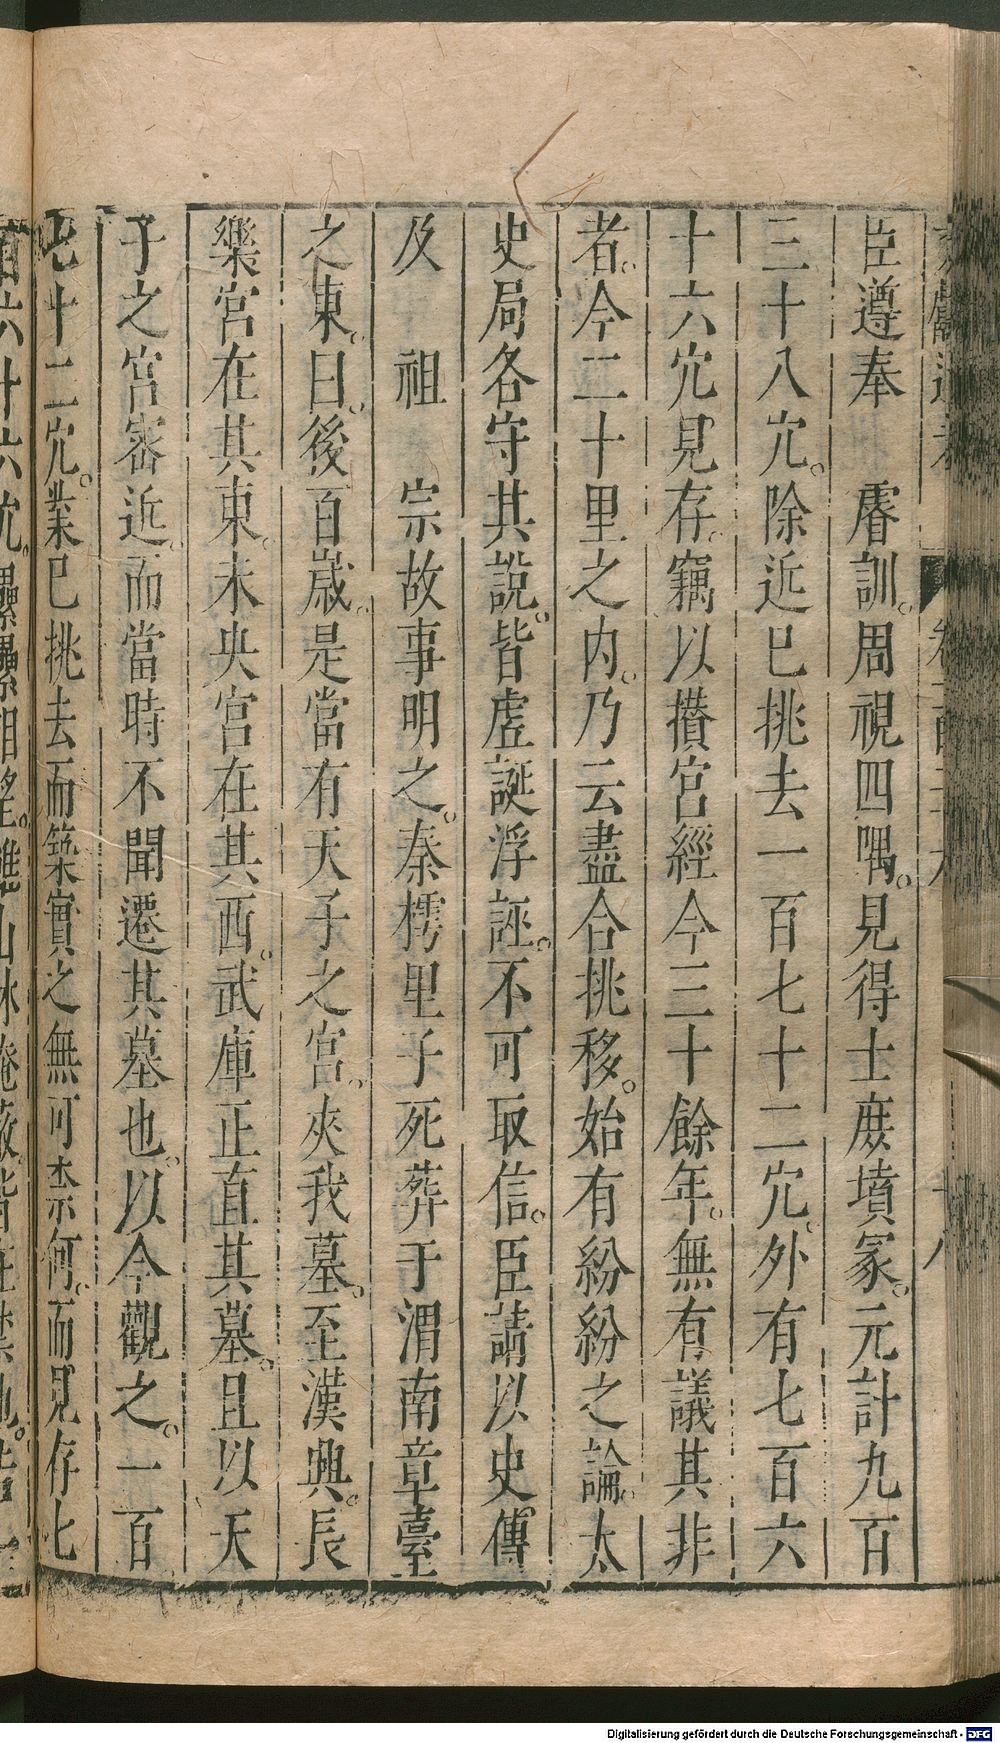 臣遵奉　睿訓。周視四隅。見得士庶墳冡。元計九百
三十八穴。除近已挑去一百七十二穴。外有七百六
十六穴見存。竊以攅宫經今三十餘年。無有議其非
者。今二十里之内。乃云盡合挑移。始有紛紛之論。太
史局各守其說。皆虗誕浮誣。不可取信。臣請以史傳
及　祖　宗故事明之。秦樗里子死葬于渭南章臺
之東。曰。後百嵗。是當有天子之宫。夾我墓。至漢興。長
樂宫在其東。未央宫在其西。武庫正直其墓。且以天
子之宫密近。而當時不聞遷其墓也。以今觀之。一百
七十二穴。業已挑去而築實之無可柰何。而見存七
百六十六穴。纍纍相望。
Digitalisierung gefördert durch die Deutsche Forschungsgemeinschaft - DFG